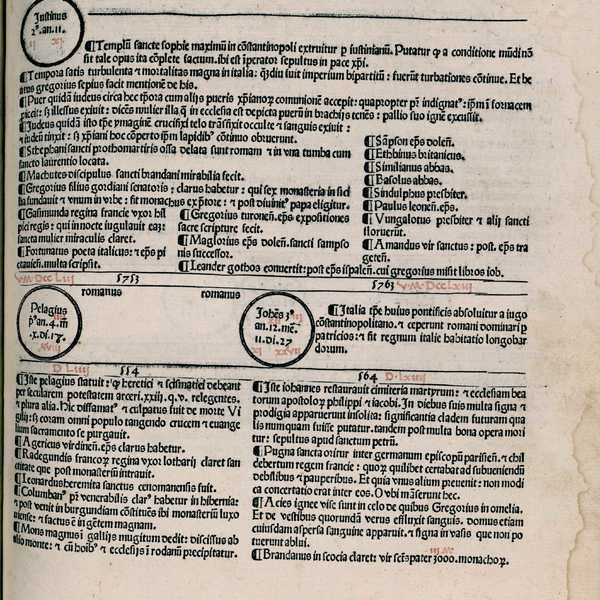 Justinus
2ˢ.an.11.
II XI
¶Templū sancte sophie maximū in cōstantinopoli extruitur ꝑ iustinianū. Putatur ꝙ a conditione mūdi nō
sit tale opus ita cōplete factum.ibi est iperator sepultus in pace xp̄i.
¶Tempora satis turbulenta ⁊ mortalitas magna in italia: qᷓdiu fuit imperium bipartitū: fuerūt turbationes cōtinue. Et be
atus gregorius sepius facit mentionē de his.
¶Puer quidā iudeus circa hec tp̄ora cum alijs pueris xp̄ianoꝝ communionē accepit: quapropter pr̄ indignatꝰ:ip̄m ī fornacem
proiecit: sꝫ illesus exiuit: dicēs mulier illa.q̄ in ecclesia est depicta puerū in brachijs tenēs: pallio suo ignē excussit.
¶Judeus quidā isto tp̄e ymaginē crucifixi telo trāsfixit occulte ⁊ sanguis exiuit:
⁊ iudeū tinxit: sꝫ xp̄iani hoc cōperto ip̄m lapidibꝰ cōtinuo obruerunt.
¶Stephani sancti prothomartiris ossa delata sunt romam ⁊ in vna tumba cum
sancto laurentio locata.
¶Machutes discipulus sancti brandani mirabilia fecit.
¶Gregorius filius gordiani senatoris: clarus habetur: qui sex monasteria in sicil
lia fundauit ⁊ vnum in vrbe: fit monachus ex p̄tore: ⁊ post diuinitꝰ papa eligitur.
¶Gasimunda regina francie vxor hil
pici regis: qui in nocte iugulauit eaꝫ:
sancta mulier miraculis claret.
¶Fortunatus poeta italicus: ⁊ ep̄s pi
ctauiēn.multa scripsit.
¶Gregorius turoneñ.ep̄s expositiones
sacre scripture fecit.
¶Maglorius ep̄s doleñ.sancti sampso
nis successor.
¶Leander gothos conuertit: post ep̄s ispaleñ.cui gregorius misit libros iob.
¶Sāpson ep̄s doleñ.
¶Ethbinus britanicus.
¶Similianus abbas.
¶Basolus abbas.
¶Sindulphus presbiter.
¶Paulus leoneñ.ep̄s.
¶Vungalotus presbiter ⁊ alij sancti
floruerūt.
¶Amandus vir sanctus: post.ep̄s tra
gēteñ.
V.M.DCC LIII
5753
5763
V.M.DCC LXIII
romanus
romanus
Pelagius
pꝰ an.4.m̄
.x.di.18.
XVIII
Joħēs 3ꝰ
an.12.mēs
11.di.27
XI XXVII
¶Italia tp̄e huius pontificis absoluitur a iugo
cōstantinopolitano.⁊ ceperunt romani dominari ꝑ
patricios:⁊ fit regnum italie habitatio longobar
dorum.
D LIIII
554
564
D.LXIIII
¶Iste pelagius statuit: ꝙ heretici ⁊ scismatici debeant
per secularem potestatem arceri.xxiij.q.v. relegentes.
⁊ plura alia.Hic diffamatꝰ ⁊ culpatus fuit de morte Vi
gilij: sꝫ coram omni populo tangendo crucem ⁊ euange
lium sacramento se purgauit.
¶Agericus virdineñ.ep̄s clarus habetur.
¶Radegundis francoꝝ regina vxor lotharij claret san
ctitate que post monasteriū intrauit.
¶Leonardus heremita sanctus cenomanensis fuit.
¶Columbanꝰ pr̄ venerabilis clarꝰ habetur in hibernia:
⁊ post venit in burgundiam cōstituēs ibi monasteriū luxo
uiense: ⁊ factus ē in gētem magnam.
¶Mons magnus ī gallijs mugitum dedit: discissus ab
alio monte: ⁊ cū hoībꝰ ⁊ ecclesijs ī rodanū precipitatur.
¶Iste iohannes restaurauit cimiteria martyrum: ⁊ ecclesiam bea
torum apostoloꝝ philippi ⁊ iacobi. In diebus suis multa signa ⁊
prodigia apparuerunt insolita: significantia cladem futuram qua
lis nunquam fuisse putatur.tandem post multa bona opera mori
tur: sepultus apud sanctum petrū.
¶Pugna sancta oritur inter germanum episcopū parisieñ. ⁊ chil
debertum regem francie: quoꝝ quilibet certabat ad subueniendū
debilibus ⁊ pauperibus. Et quia vnus alium preuenit: non modi
ca concertatio erat inter eos. O vbi mō sunt hec.
¶Acies ignee vise sunt in celo de quibus Gregorius in omelia.
Et de vestibus quorundā verus effluxit sanguis. domus etiam
cuiusdam aspersa sanguine apparuit.⁊ signa in vasis que non po
tuerunt ablui.
¶Brandanus in scocia claret: vir sctūs pater 3000.monachoꝝ.
III.M.